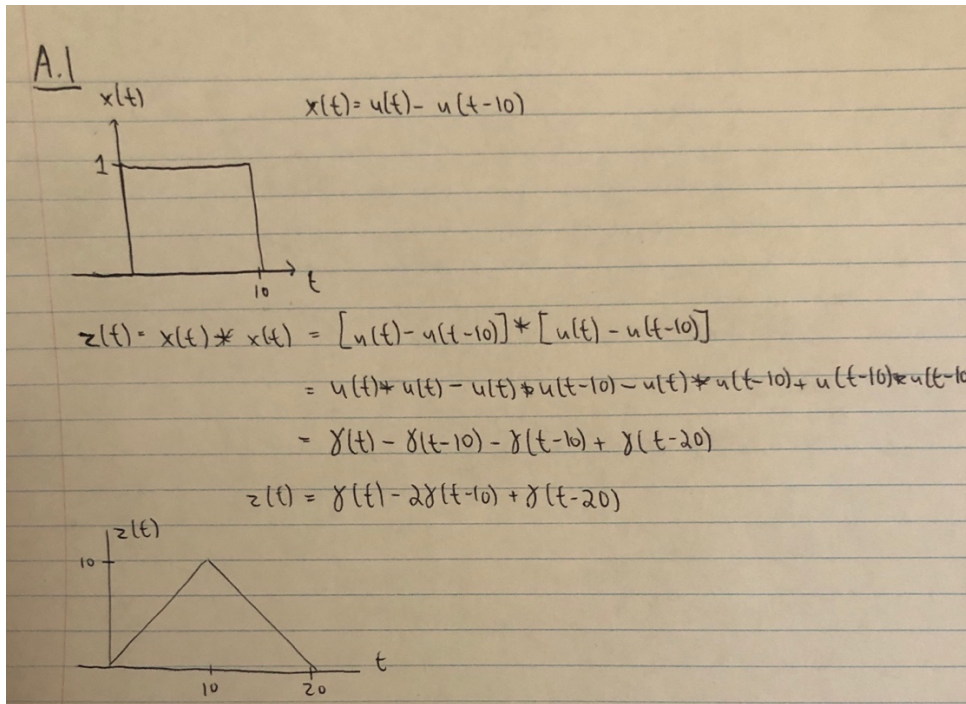 A.1
x(t)
x(t) = u(t) - u(t-10)
1
10
t
z(t) = x(t) * x(t) = [u(t) - u(t-10)] * [u(t) - u(t-10)]
= u(t) * u(t) - u(t) * u(t-10) - u(t) * u(t-10) + u(t-10) * u(t-10
= γ(t) - γ(t-10) - γ(t-10) + γ(t-20)
z(t) = γ(t) - 2γ(t-10) + γ(t-20)
z(t)
10
t
10
20